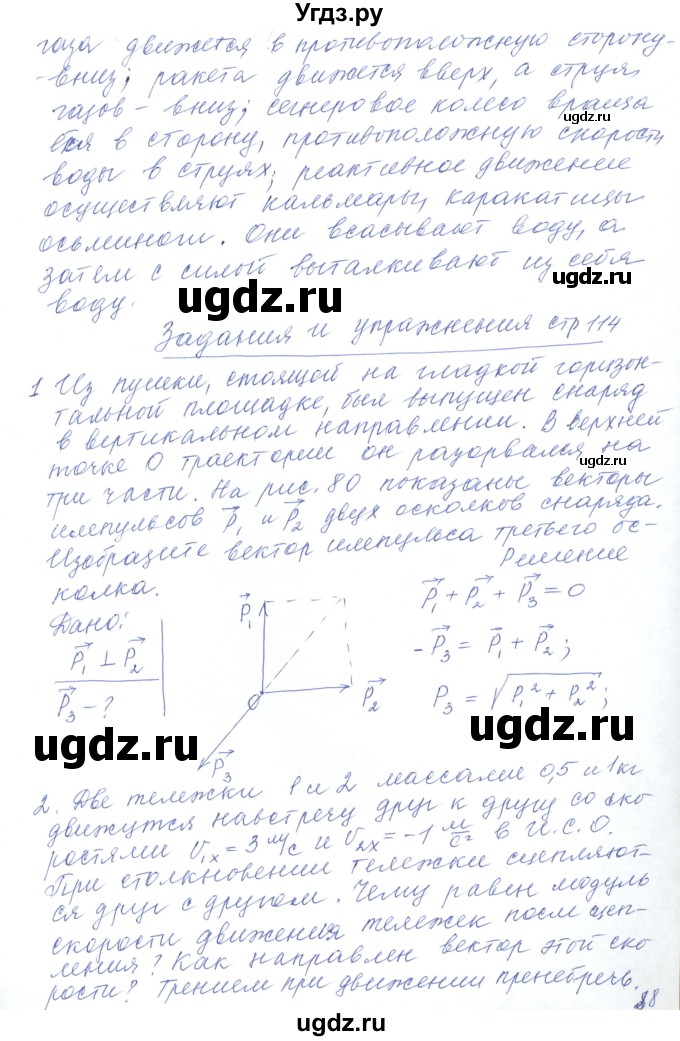 Угдз.ру
газа движется в противоположную сторону-
-вниз; ракета движется вверх, а струя
газов - вниз; сегнеровое колесо враща
ется в сторону, противоположную скорости
воды в струях; реактивное движение
осуществляют кальмары, каракатицы
осьминоги. Они всасывают воду, а
затем с силой выталкивают из себя
воду.
Задания и упражнения стр 114
1 Из пушки, стоящей на гладкой горизон-
тальной площадке, был выпущен снаряд
в вертикальном направлении. В верхней
точке О траектории он разорвался на
три части. На рис. 80 показаны векторы
импульсов P⃗₁ и P⃗₂ двух осколков снаряда.
Изобразите вектор импульса третьего ос-
колка.
Решение
Дано:
P⃗₁ ⊥ P⃗₂
P⃗₃ - ?
P⃗₁
O
P⃗₂
P⃗₃
P⃗₁ + P⃗₂ + P⃗₃ = 0
-P⃗₃ = P⃗₁ + P⃗₂;
P₃ = √(P₁² + P₂²);
2. Две тележки 1 и 2 массами 0,5 и 1 кг
движутся навстречу друг к другу со ско
ростями V₁ₓ = 3 м/с и V₂ₓ = -1 м/с² в И.С.О.
При столкновении тележки сцепляют-
ся друг с другом. Чему равен модуль
скорости движения тележек после сцеп-
ления? Как направлен вектор этой ско
рости? Трением при движении пренебречь.
88
ugdz.ru
ugdz.ru
ugdz.ru
ugdz.ru
ugdz.ru
ugdz.ru
ugdz.ru
ugdz.ru